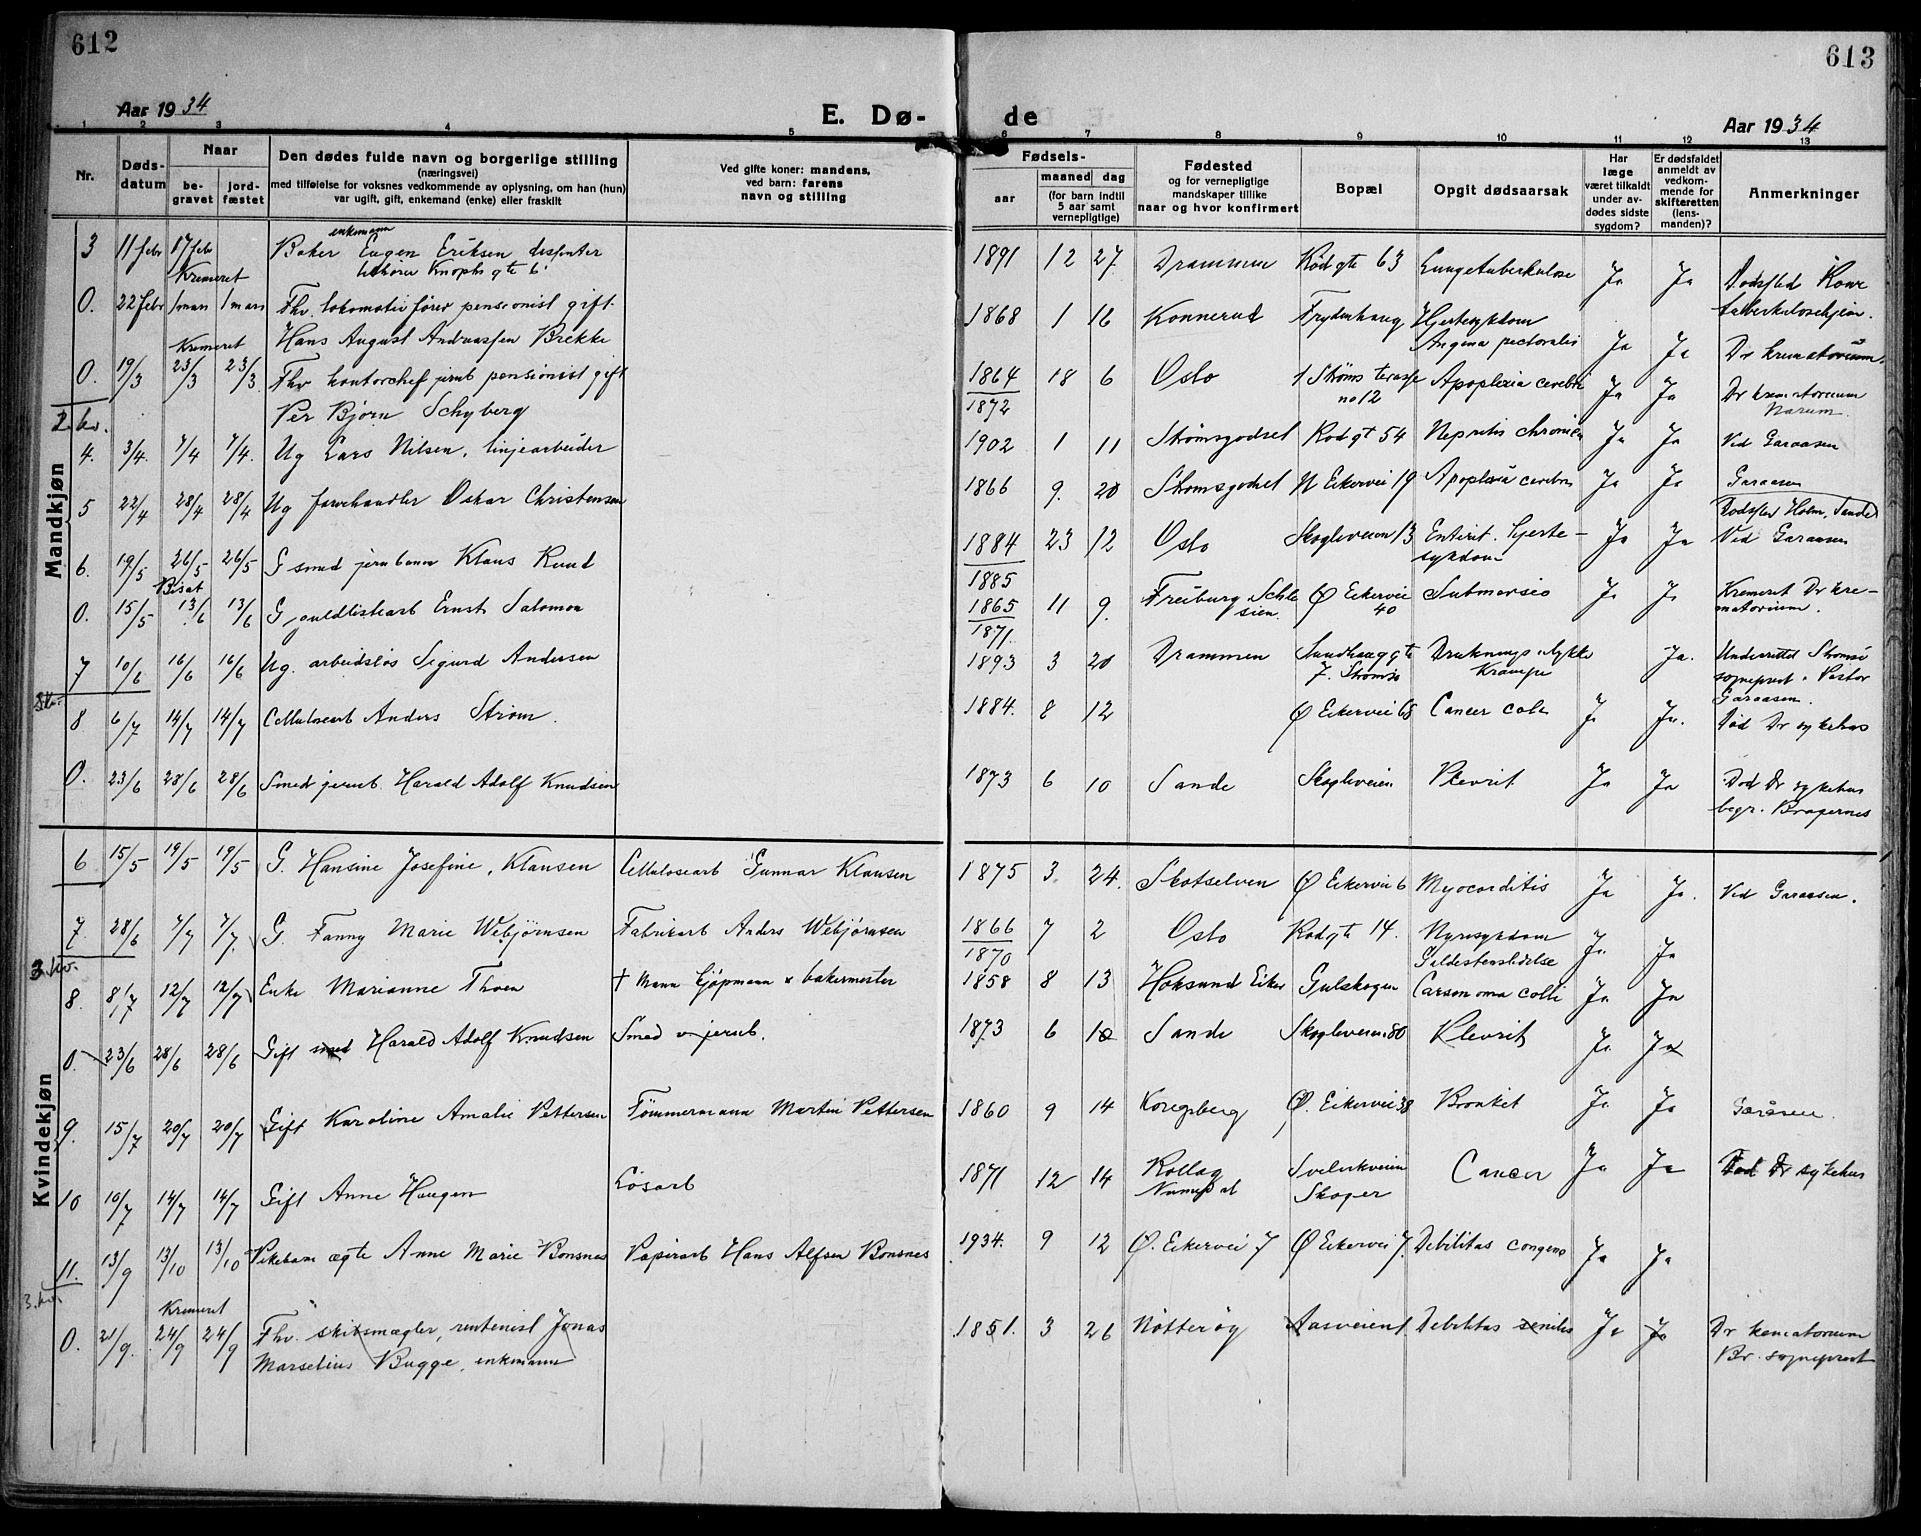 612
613
Aar 1934
E. Dø-
de
Aar 1934
1 2 3 4 5 6 7 8 9 10 11 12 13
Nr.
Døds-
datum
Naar
be-
gravet
jord-
fæstet
Den dødes fulde navn og borgerlige stilling
(næringsvei)
med tilføielse for voksnes vedkommende av oplysning, om han (hun)
var ugift, gift, enkemand (enke) eller fraskilt
Ved gifte koner: mandens,
ved barn: farens
navn og stilling
Fødsels-
aar
maaned
dag
(for barn indtil
5 aar samt
vernepligtige)
Fødested
og for vernepligtige
mandskaper tillike
naar og hvor konfirmert
Bopæl
Opgit dødsaarsak
Har
læge
været tilkaldt
under av-
dødes sidste
sygdom?
Er dødsfaldet
anmeldt av
vedkom-
mende for
skifteretten
(lens-
manden)?
Anmerkninger
Mandkjøn
enkemann
3 11 febr 17 febr Baker Eugen Eriksen 1891 12 27 Drammen Rødgte 63 Lungetuberkulose Ja Ja Dødsted
Kremeret Knophs gte 6
0. 22 febr 1 mars 1 mars Fhv. lokomotivfører pensionist gift 1868 1 16 Konnerud Frydenhaug Hjertesykdom Ja Ja Dr krematorium
Hans August Andreassen Brekke Angina pectoralis
Kremeret
0. 19/3 23/3 23/3 Fhv kontorchef jernb pensionist gift 1864 18 6 Oslo 1 Strøms terasse Apoplexia cerebri Ja Ja Dr krematorium
Per Bjørn Schyberg 1872 no 12 Narum
2. kv.
4. 3/4. 7/4 7/4. Ug Lars Nilsen, linjearbeider 1902 1 11 Strømsgodset Rødgt 54 Nepritis chronica Ja Ja Ved Garaasen
5 22/4 28/4 28/4 Ug farvehandler Oskar Christensen 1866 9. 20 Strømsgodset N Eikervei 19 Apoplexia cerebri Ja Ja Garaasen
Dødsted Holm, Sande
6. 19/5 26/5 26/5 G smed jernbanen Klaus Ruud 1884 23 12 Oslo Skogliveien 13 Enterit. Hjerte- Ja Ja Ved Garaasen
1885 sykdom
Bisat
0. 15/5 13/6 13/6 G. guldlistearb Ernst Salomon 1865 11 9. Freiburg Schle Ø Eikervei Submersio Ja Ja Kremeret Dr kre-
1871. sien. 40 matorium.
7 10/6 16/6 16/6 Ug. arbeidsløs Sigurd Andersen 1893 3 20 Drammen Sundhauggte Druknings ulykke Ja. Underrettet Strømsø
7. Strømsø Krampe sogneprest. Pastor
Garaasen.
8 6/7 14/7 14/7 Cellulosearb Anders Strøm. 1884. 8 12 Ø Eikervei 65 Cancer coli Ja Ja. Død Dr sykehus
0. 23/6 28/6 28/6 Smed jernb. Harald Adolf Knudsen 1873 6 10 Sande Skogliveien Plevrit Ja Ja Død Dr sykehus
begr. Bragernes
Kvindekjøn
6 15/5 19/5 19/5 G. Hansine Josefine, Klausen Cellulosearb Gunnar Klausen 1875 3 24. Skotselven Ø Eikervei 6 Myocarditis Ja Ja. Ved Garaasen.
7. 28/6 7/7 7/7. G. Fanny Marie Webjørnsen Fabrikarb Anders Webjørnsen 1866 7 2 Oslo Rødgte 14. Nyresykdom Ja Ja
1870 Galdestenslidelse
3. kv.
8. 8/7 12/7 12/7 Enke Marianne Thoen † Mann kjøpmann & bakermester 1858 8 13 Hoksund Eiker Gulskogen Carsonoma colli Ja Ja
0. 23/6 28/6 28/6 Gift smed Harald Adolf Knudsen Smed v jernb. 1873 6 10 Sande Skogliveien 80 Plevrit Ja Ja
9. 15/7 20/7 20/7 Gift Karoline Amalie Pettersen Tømmermann Martin Pettersen 1860 9 14 Kongsberg Ø. Eikervei 38 Bronkit Ja Ja Garåsen.
10 10/7 14/7 14/7 Gift Anne Haugen Løsarb 1871 12 14 Rollag Svelvikveien Cancer Ja Ja Død Dr sykehus
Numedal Skoger
11. 13/9 13/10 13/10 Pikebarn ægte Anne Marie Bonsnes Papirarb Hans Alfsen Bonsnes 1934. 9 12 Ø. Eikervei 7 Ø Eikervei 7. Debilitas congena Ja Ja
3. kv.
Kremeret
0. 21/9. 24/9 24/9 Fhv. skibsmægler, rentenist Jonas 1851. 3 26 Nøtterøy Aasveien 1 Debilitas senilis Ja Ja Dr krematorium
Marselius Bugge, enkemann Br. sogneprest